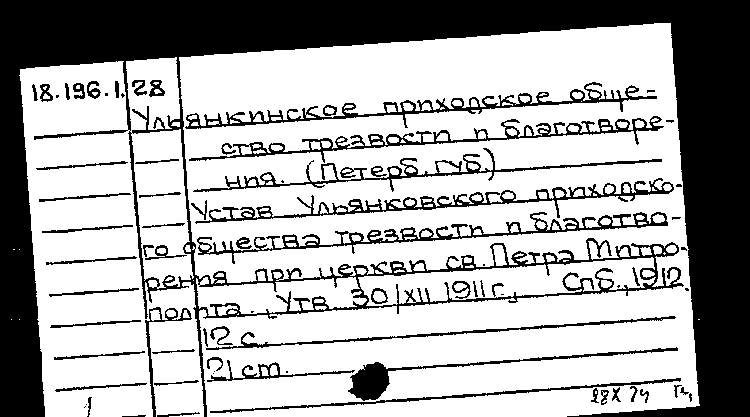 18.196.1.28
Ульянкинское приходское обще=
ство трезвости и благотворе-
ния. (Петерб. губ.)
Устав Ульянковского приходско-
го общества трезвости и благотво-
рения при церкви св. Петра Митро-
полита. „Утв. 30/XII 1911 г.„ Спб., 1912.
12 с.
21 cm.
1 28 X 74